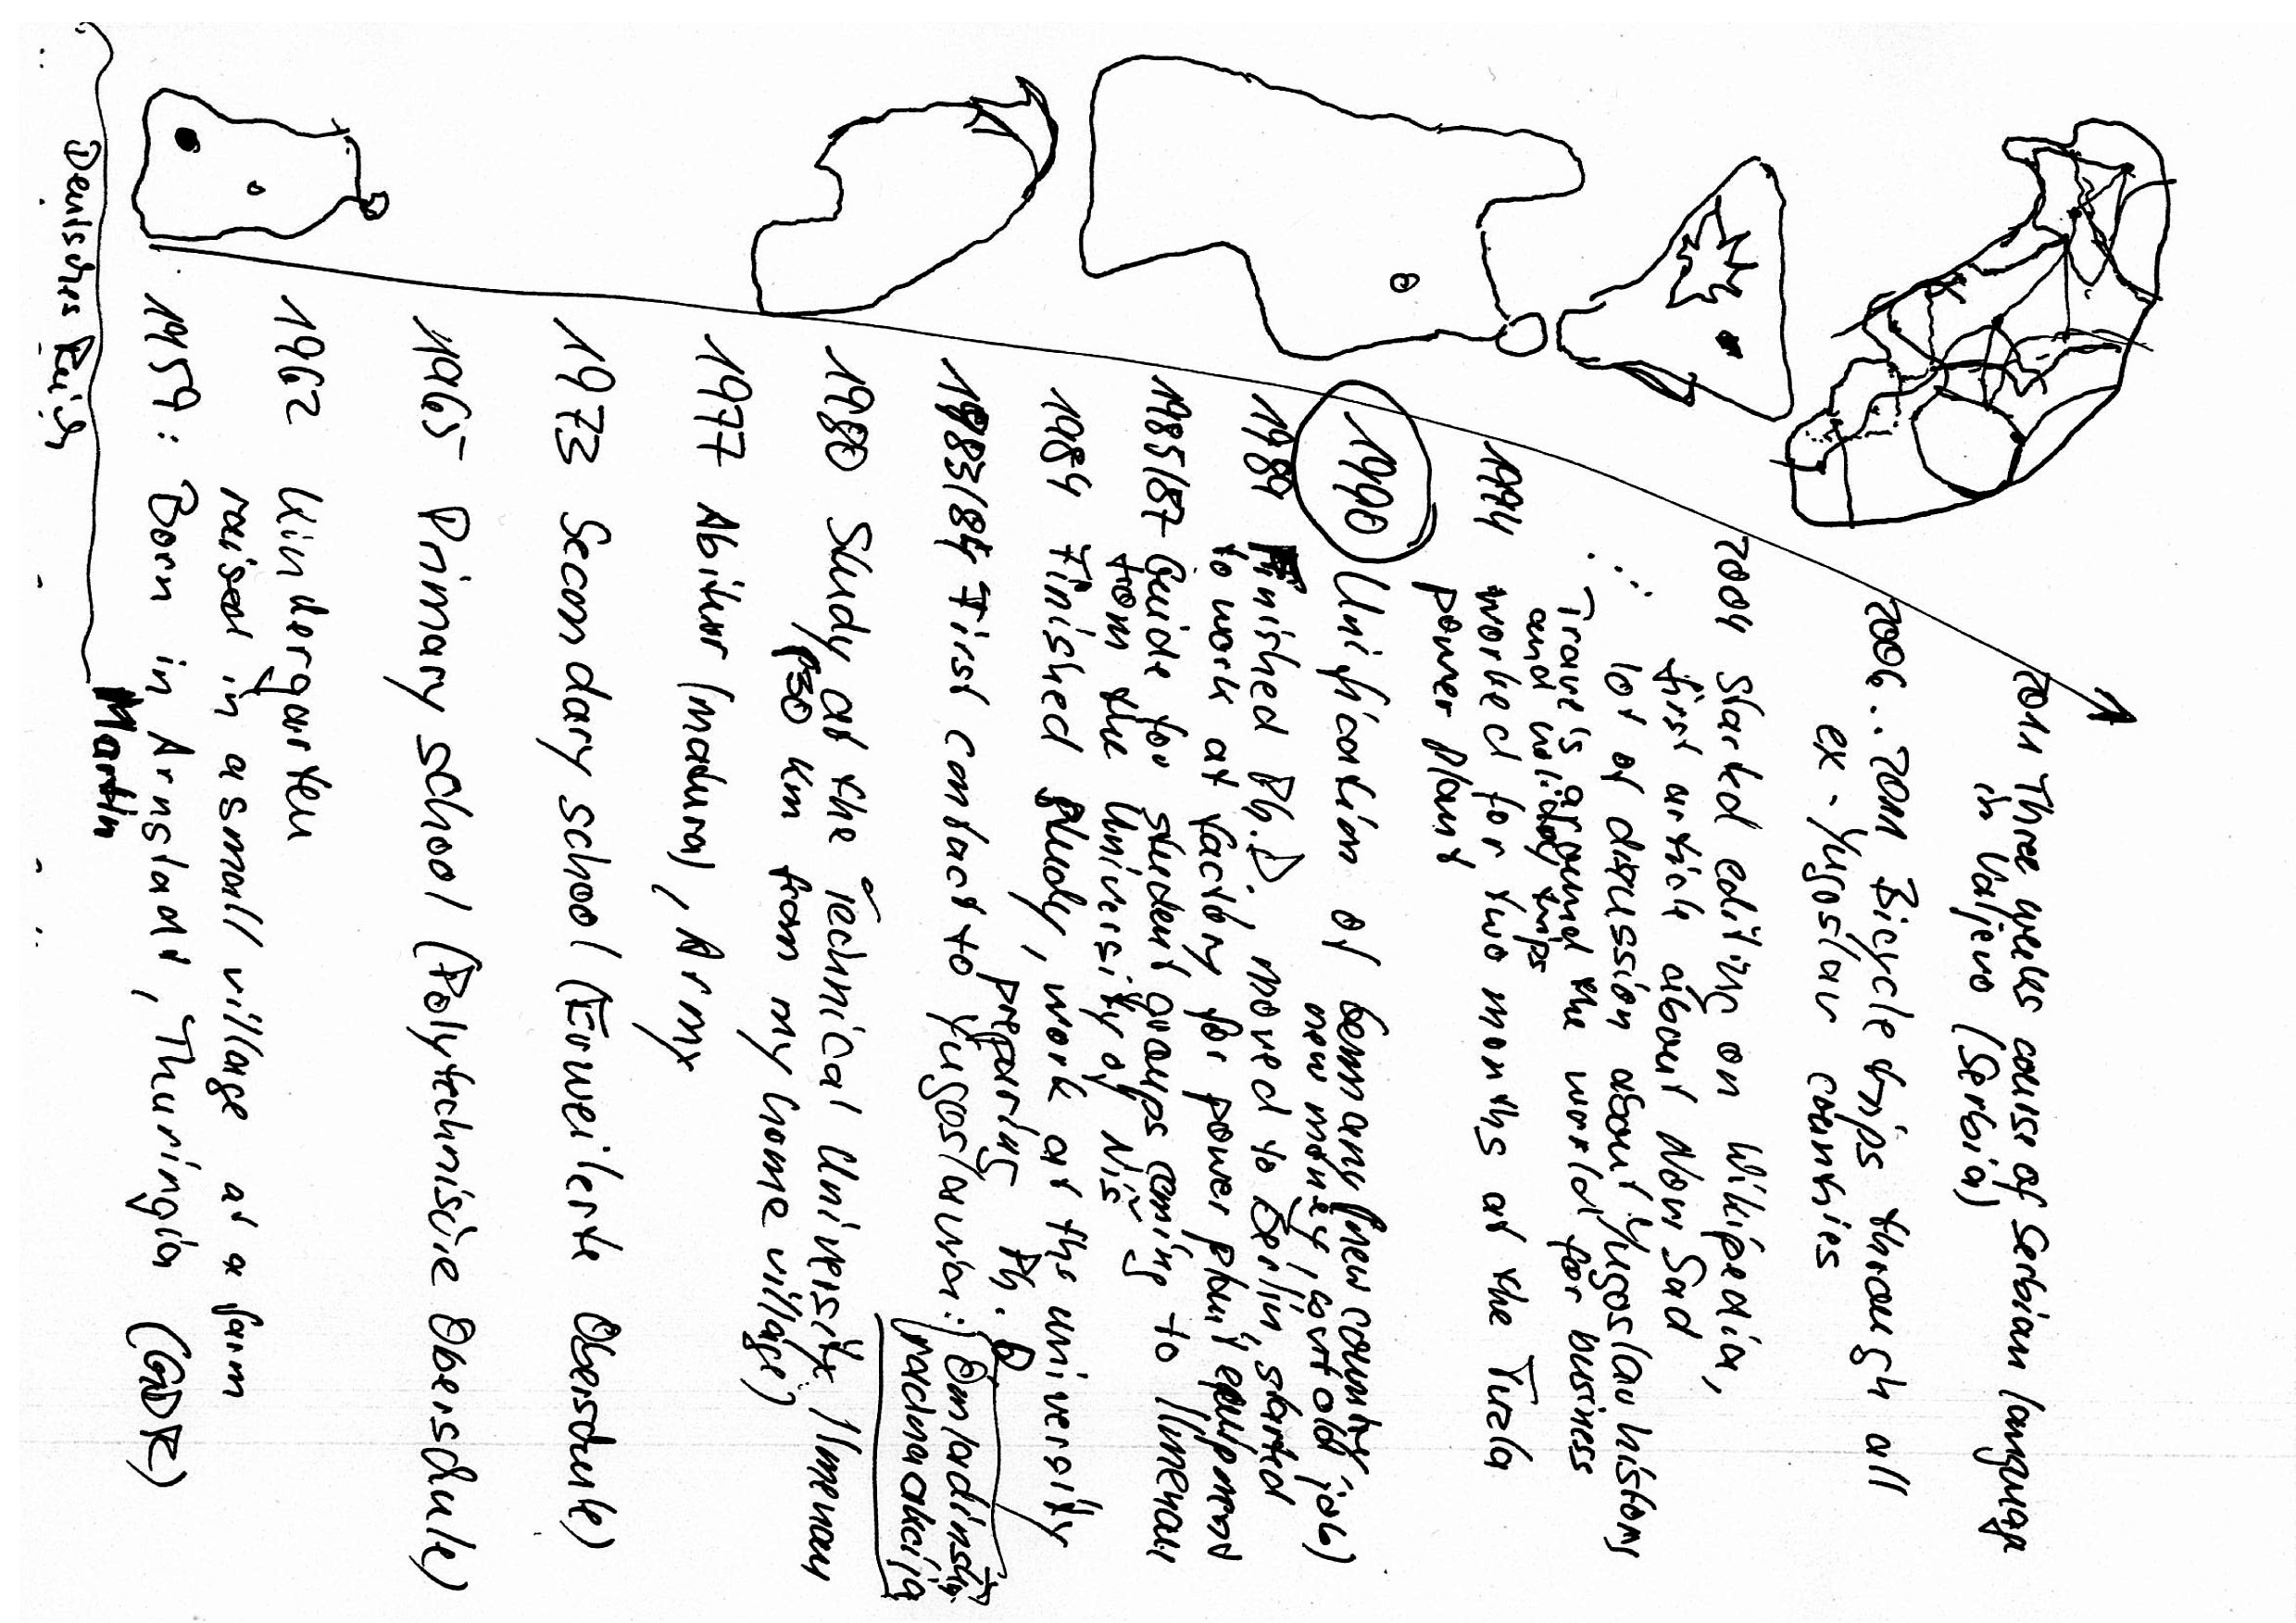 2011 Three weeks course of Serbian language
in Valjevo (Serbia)
2006..2011 Bicycle trips through all
ex-Yugoslav countries
2004 Started editing on Wikipedia,
first article about Novi Sad
lot of discussion about Yugoslav history
Travels around the world for business
and holiday trips
1994 worked for two months at the Tuzla
power plant
1990 Unification of Germany (new country,
new money, lost old job)
1989 Finished Ph.D. moved to Berlin, started
to work at factory for power plant equipment
1985/87 Guide for student groups coming to Ilmenau
from the University of Niš
1984 Finished study, work at the university
preparing Ph.D
1983/84 First contact to Yugoslavia: Omladinska
radna akcija
1980 Study at the Technical University Ilmenau
(30 km from my home village)
1977 Abitur (matura), Army
1973 Secondary school (Erweiterte Oberschule)
1965 Primary school (Polytechnische Oberschule)
1962 Kindergarten
raised in a small village at a farm
1959: Born in Arnstadt, Thuringia (GDR)
Martin
Deutsches Reich